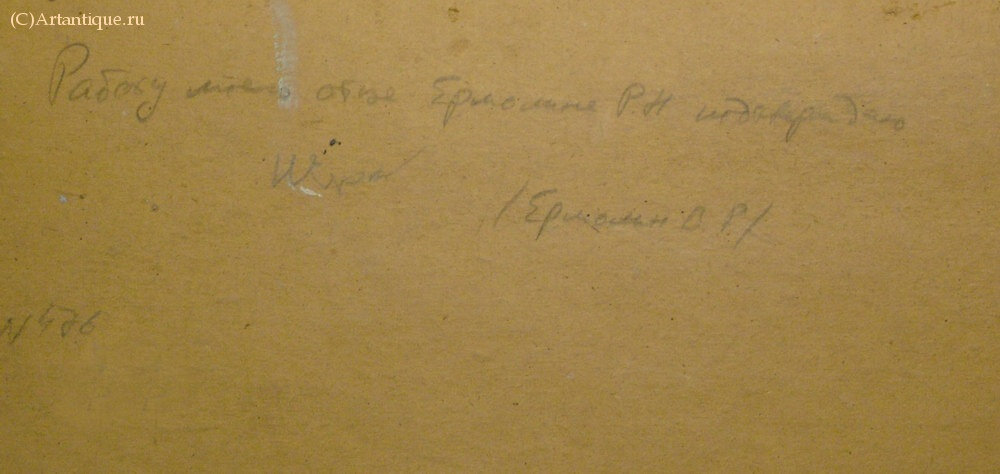 (C)Artantique.ru
Работу моего отца Ермолина Р.Н подтверждаю
/Ермолин В.Р./
N 476